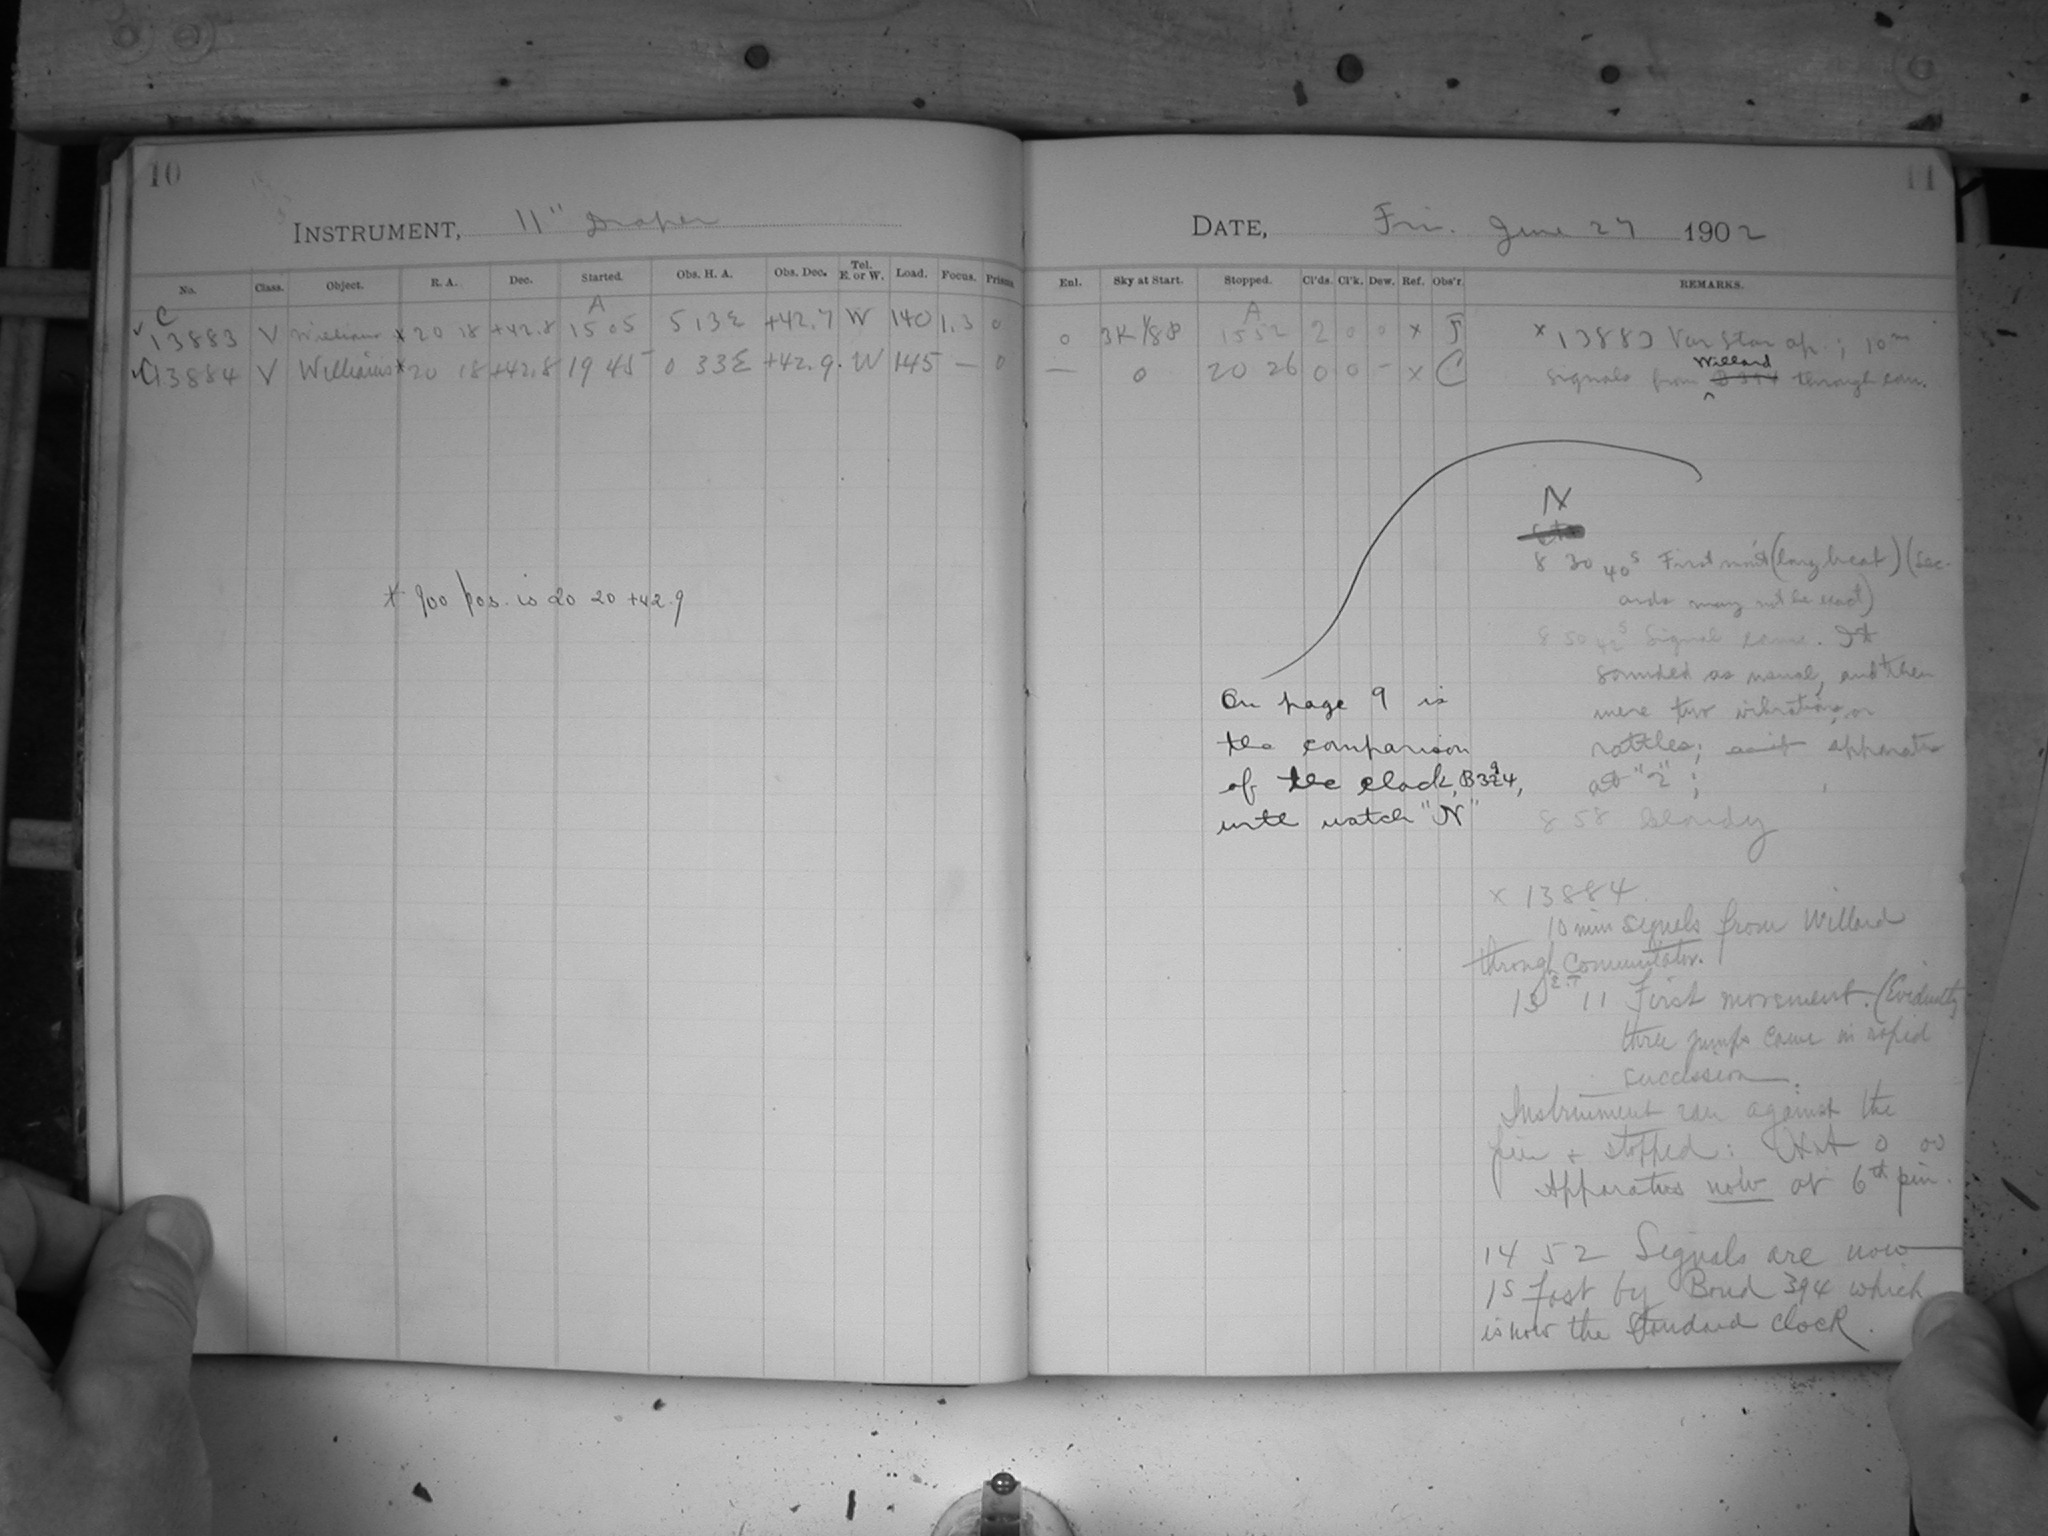 10
INSTRUMENT, 11" Draper
No. Class. Object. R. A. Dec. Started. Obs. H. A. Obs. Dec. Tel. E. or W. Load. Focus. Prisms
C A
13883 V Williams x 20 18 +42.8 15 05 5 13 E +42.7 W 140 1.3 0
C13884 V Williams x 20 18 +42.8 19 45 0 33 E +42.9 W 145 — 0
* 900 pos. is 20 20 +42.9
11
DATE, Fri. June 27 1902
Enl. Sky at Start. Stopped. Cl'ds. Cl'k. Dew. Ref. Obs'r. REMARKS.
A
0 3K 1/88 15 52 2 0 0 x J
— 0 20 26 0 0 – x C
x 13883 Var Star ap.; 10m
signals from Willard through com.
N
8 30 40s First mov't (long beat) (sec-
onds may not be exact)
8 50 42s Signal came. It
sounded as usual, and then
were two vibrations, or
rattles; apparatus
at "2";
8 58 Cloudy
On page 9 is
the comparison
of the clock, B394,
with watch "N"
x 13884
10 min signals from Willard
through Commutator.
13 E.T 11 First movement. (Evidently
three jumps came in rapid
succession.
Instrument ran against the
pier + stopped: 0 00
Apparatus now at 6th pin.
14 52 Signals are now
1s fast by Bond 394 which
is now the Standard Clock.